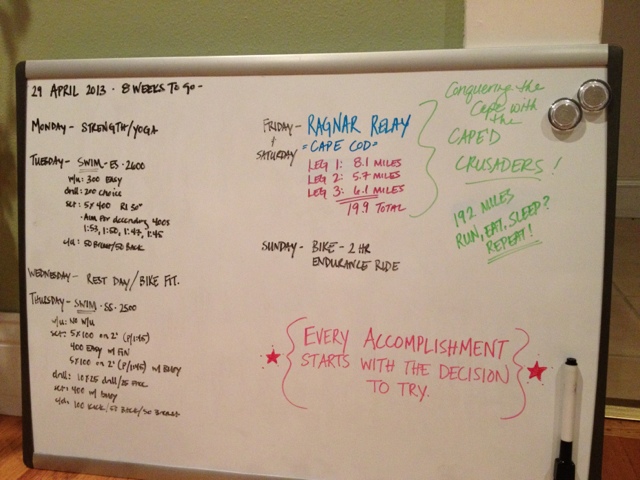 29 APRIL 2013 · 8 WEEKS TO GO -
MONDAY - STRENGTH/YOGA
TUESDAY - SWIM - ES · 2600
w/u: 300 EASY
drill: 200 choice
set: 5 x 400 RI 30"
- Aim for descending 400s
1:53, 1:50, 1:47, 1:45
c/d: 50 Breast/50 Back
WEDNESDAY - REST DAY/BIKE FIT.
THURSDAY - SWIM · SS · 2500
w/u: NO W/U
set: 5x100 on 2' (P/1:45)
400 EASY w/ FIN
5x100 on 2' (P/1:45) w/ BUOY
drill: 10x25 drill/25 FREE
set: 400 w/ BUOY
c/d: 100 BACK/50 BACK/50 BREAST
FRIDAY + SATURDAY - RAGNAR RELAY
"CAPE COD"
LEG 1: 8.1 MILES
LEG 2: 5.7 MILES
LEG 3: 6.1 MILES
19.9 TOTAL
Conquering the
Cape with
the
CAPE'D
CRUSADERS!
192 MILES
RUN, EAT, SLEEP?
REPEAT!
SUNDAY - BIKE - 2 HR
ENDURANCE RIDE
EVERY ACCOMPLISHMENT
STARTS WITH THE DECISION
TO TRY.